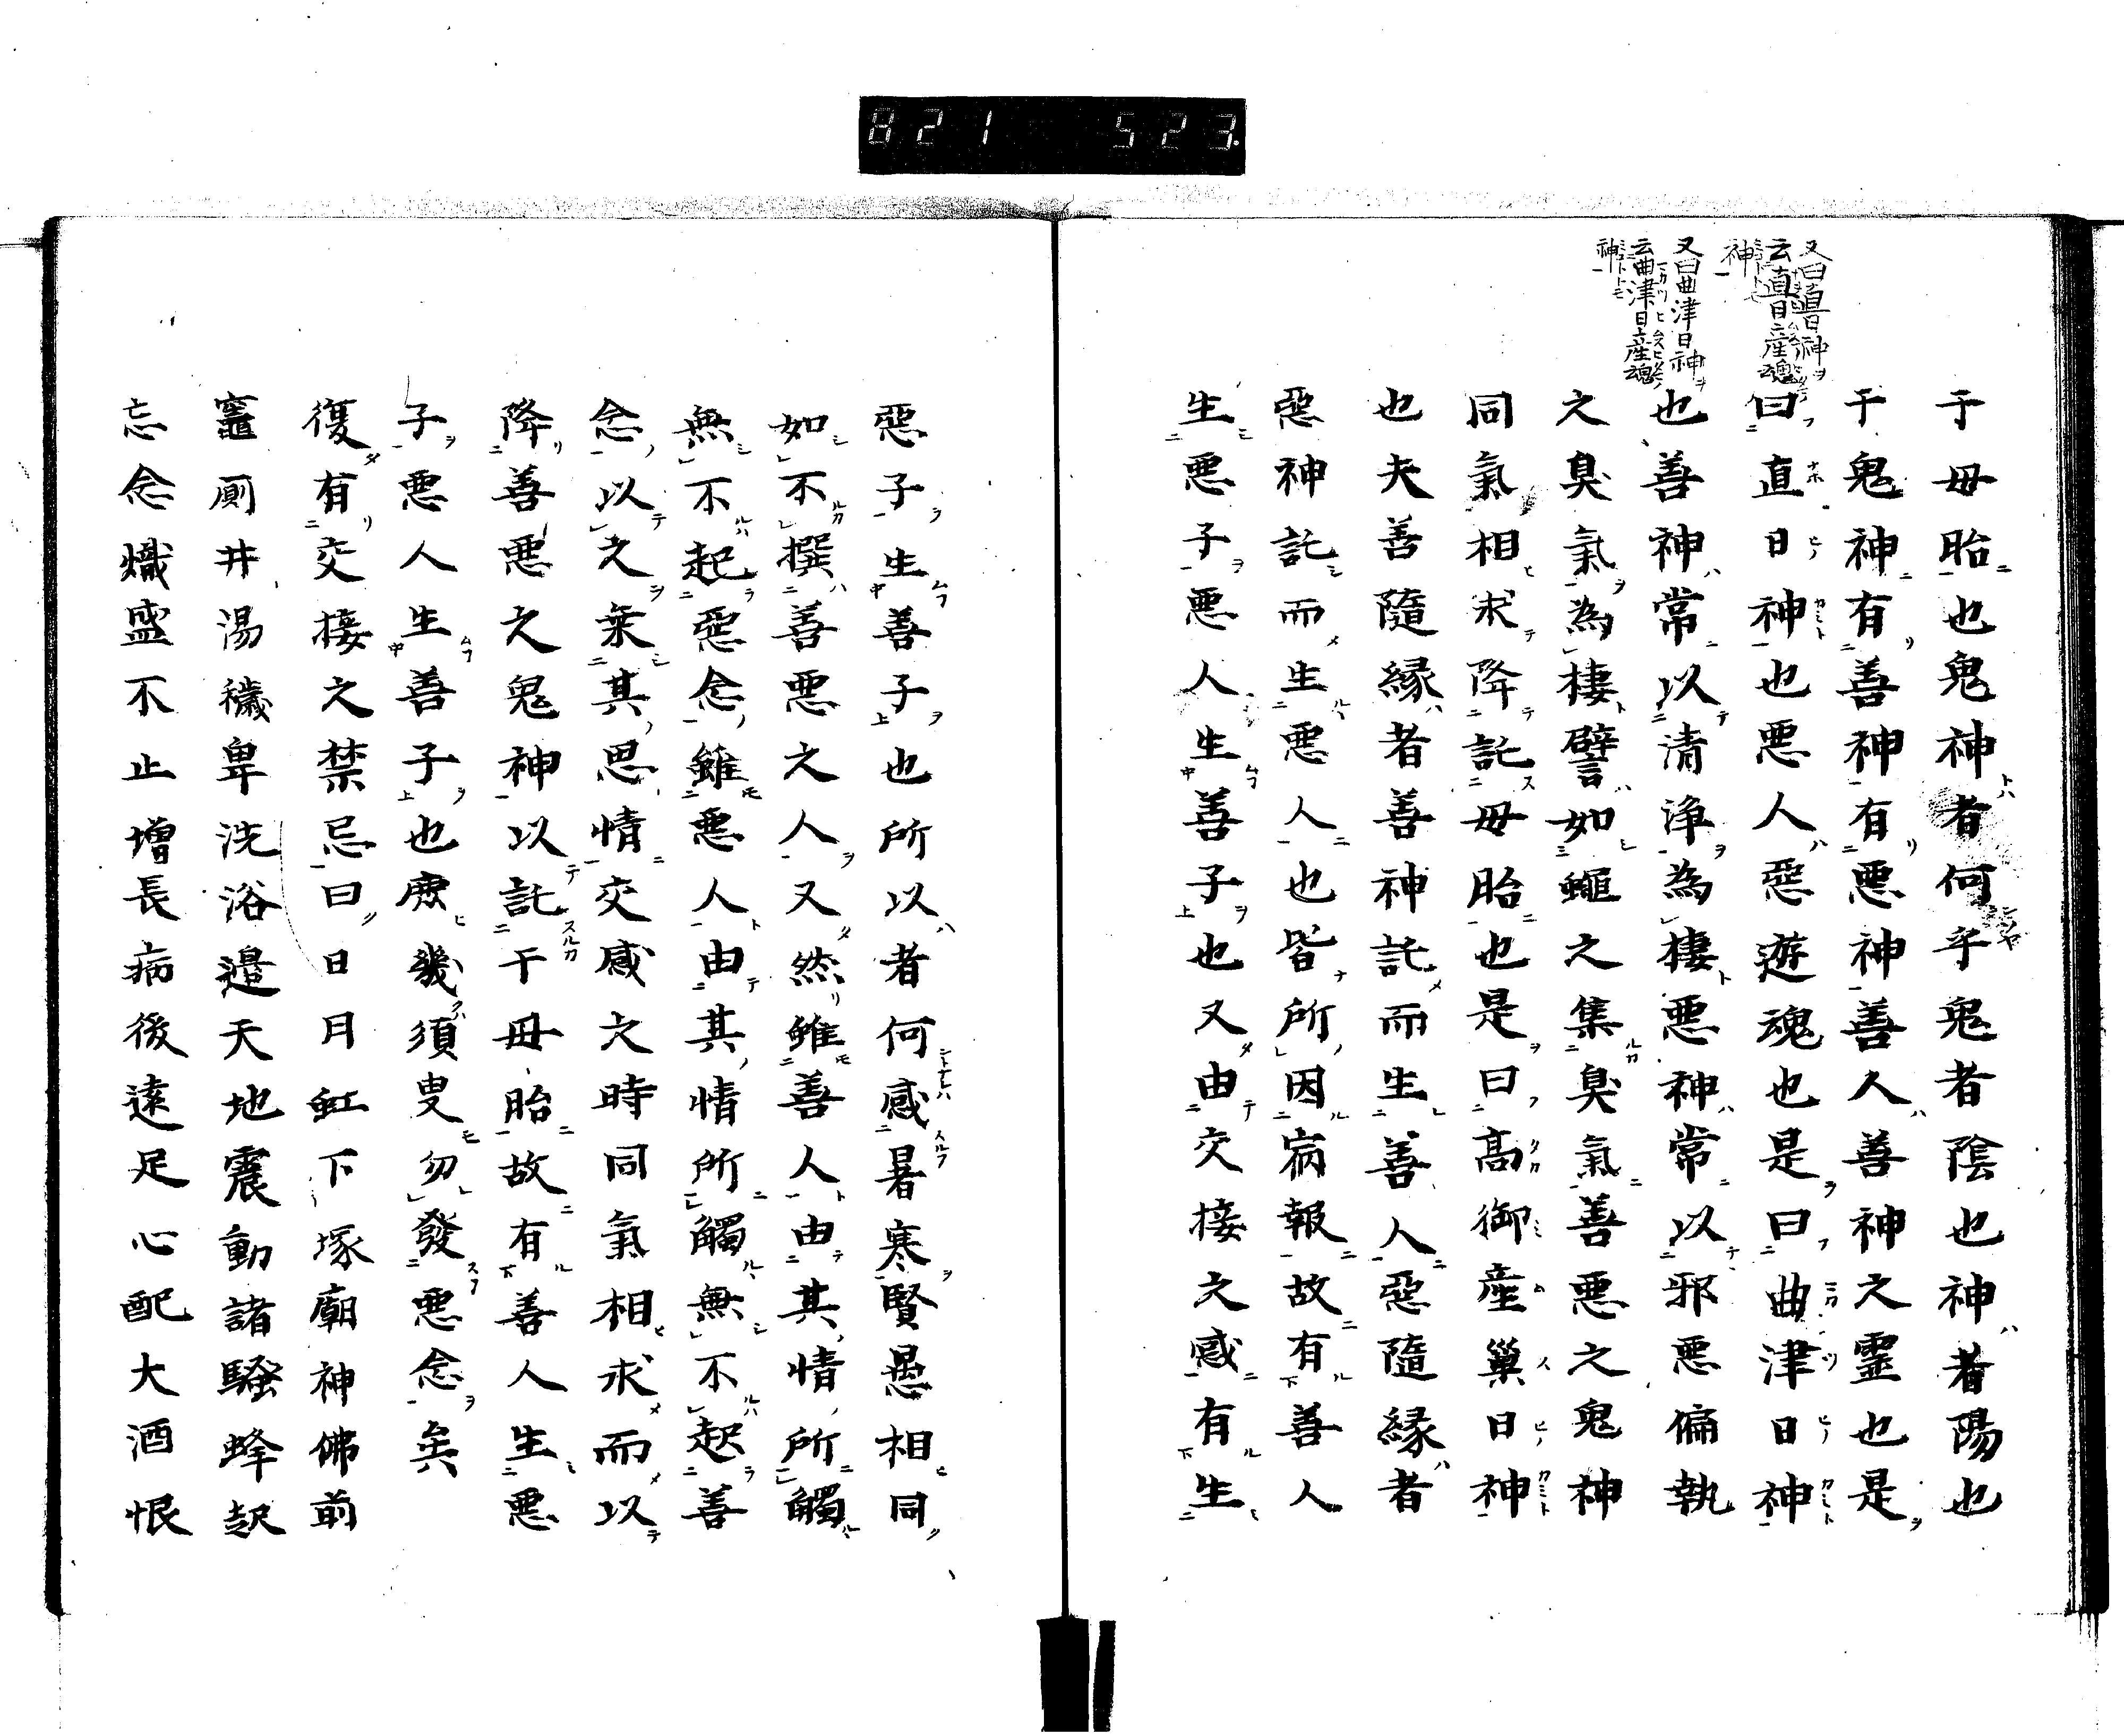 821 523.
又曰直日神
云直日産魂
神
又曰曲津日神
云曲津日産魂
神
于毋胎也鬼神者何乎鬼者陰也神者陽也
于鬼神有善神有悪神善人善神之霊也是
曰直日神也悪人惡遊魂也是曰曲津日神
也善神常以清浄為棲悪神常以邪悪偏執
之臭氣為棲譬如蠅之集臭氣善悪之鬼神
同氣相求降託毋胎也是曰高御産巣日神
也夫善隨縁者善神託而生善人惡隨縁者
惡神託而生悪人也皆所因病報故有善人
生悪子悪人生善子也又由交接之感有生
惡子生善子也所以者何感暑寒賢愚相同
如不撰善悪之人又然雖善人由其情所觸
無不起惡念雖悪人由其情所觸無不起善
念以之乗其思情交感之時同氣相求而以
降善悪之鬼神以託于毋胎故有善人生悪
子悪人生善子也庶幾須叟勿發悪念矣
復有交接之禁忌曰日月虹下塚廟神佛前
竈厠井湯穢卑洗浴邉天地震動諸騒蜂起
忘念熾盛不止增長病後遠足心配大酒恨